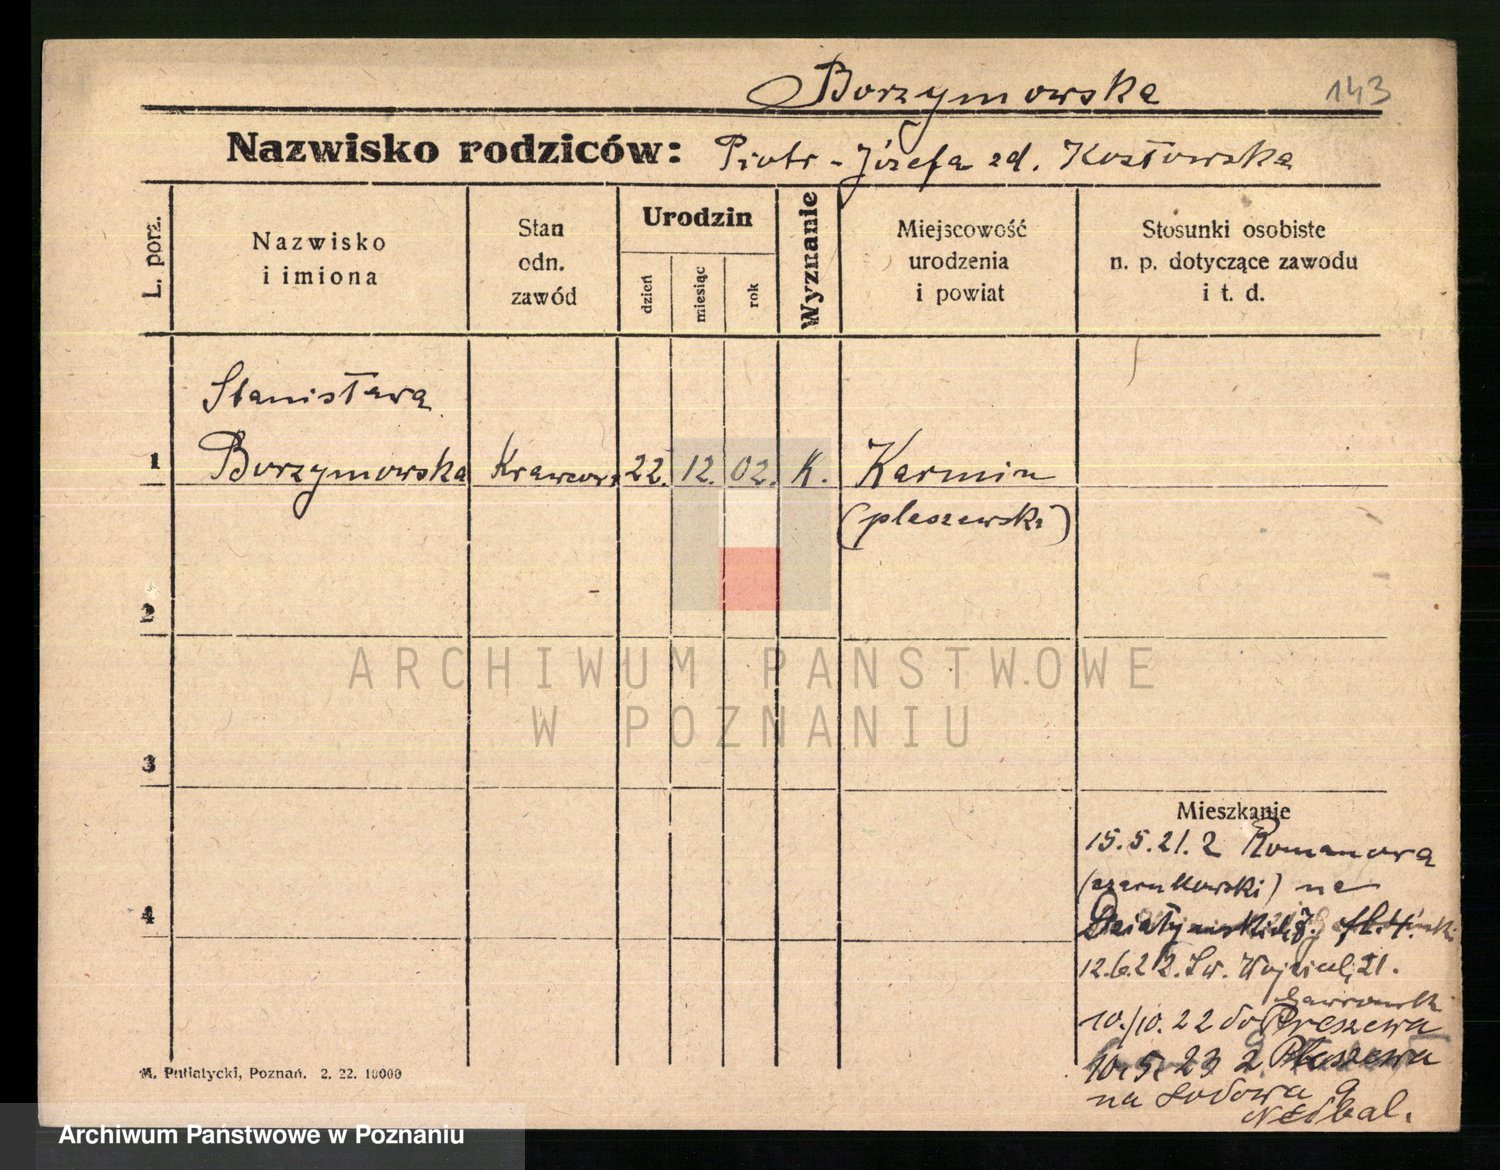 Borzymowska 143
Nazwisko rodziców: Piotr - Józefa zd. Kosłowska
L. porz.
Nazwisko
i imiona
Stan
odn.
zawód
Urodzin
dzień
miesiąc
rok
Wyznanie
Miejscowość
urodzenia
i powiat
Stosunki osobiste
n. p. dotyczące zawodu
i t. d.
Stanisława
1 Borzymowska Krawcow. 22. 12. 02. K. Karmin
(pleszewski)
2
ARCHIWUM PAŃSTWOWE
W POZNANIU
3
Mieszkanie
15.5.21. z Romanowa
(czarnkowski) na
4
Działyńskich 7.
12.6.22. Św. Wojciech 21.
Gawronsk
10./10. 22 do Pleszewa
10. 5. 23 z Pleszewa
na Lodowa 9
Niedbal.
M. Putiatycki, Poznań. 2. 22. 10000
Archiwum Państwowe w Poznaniu